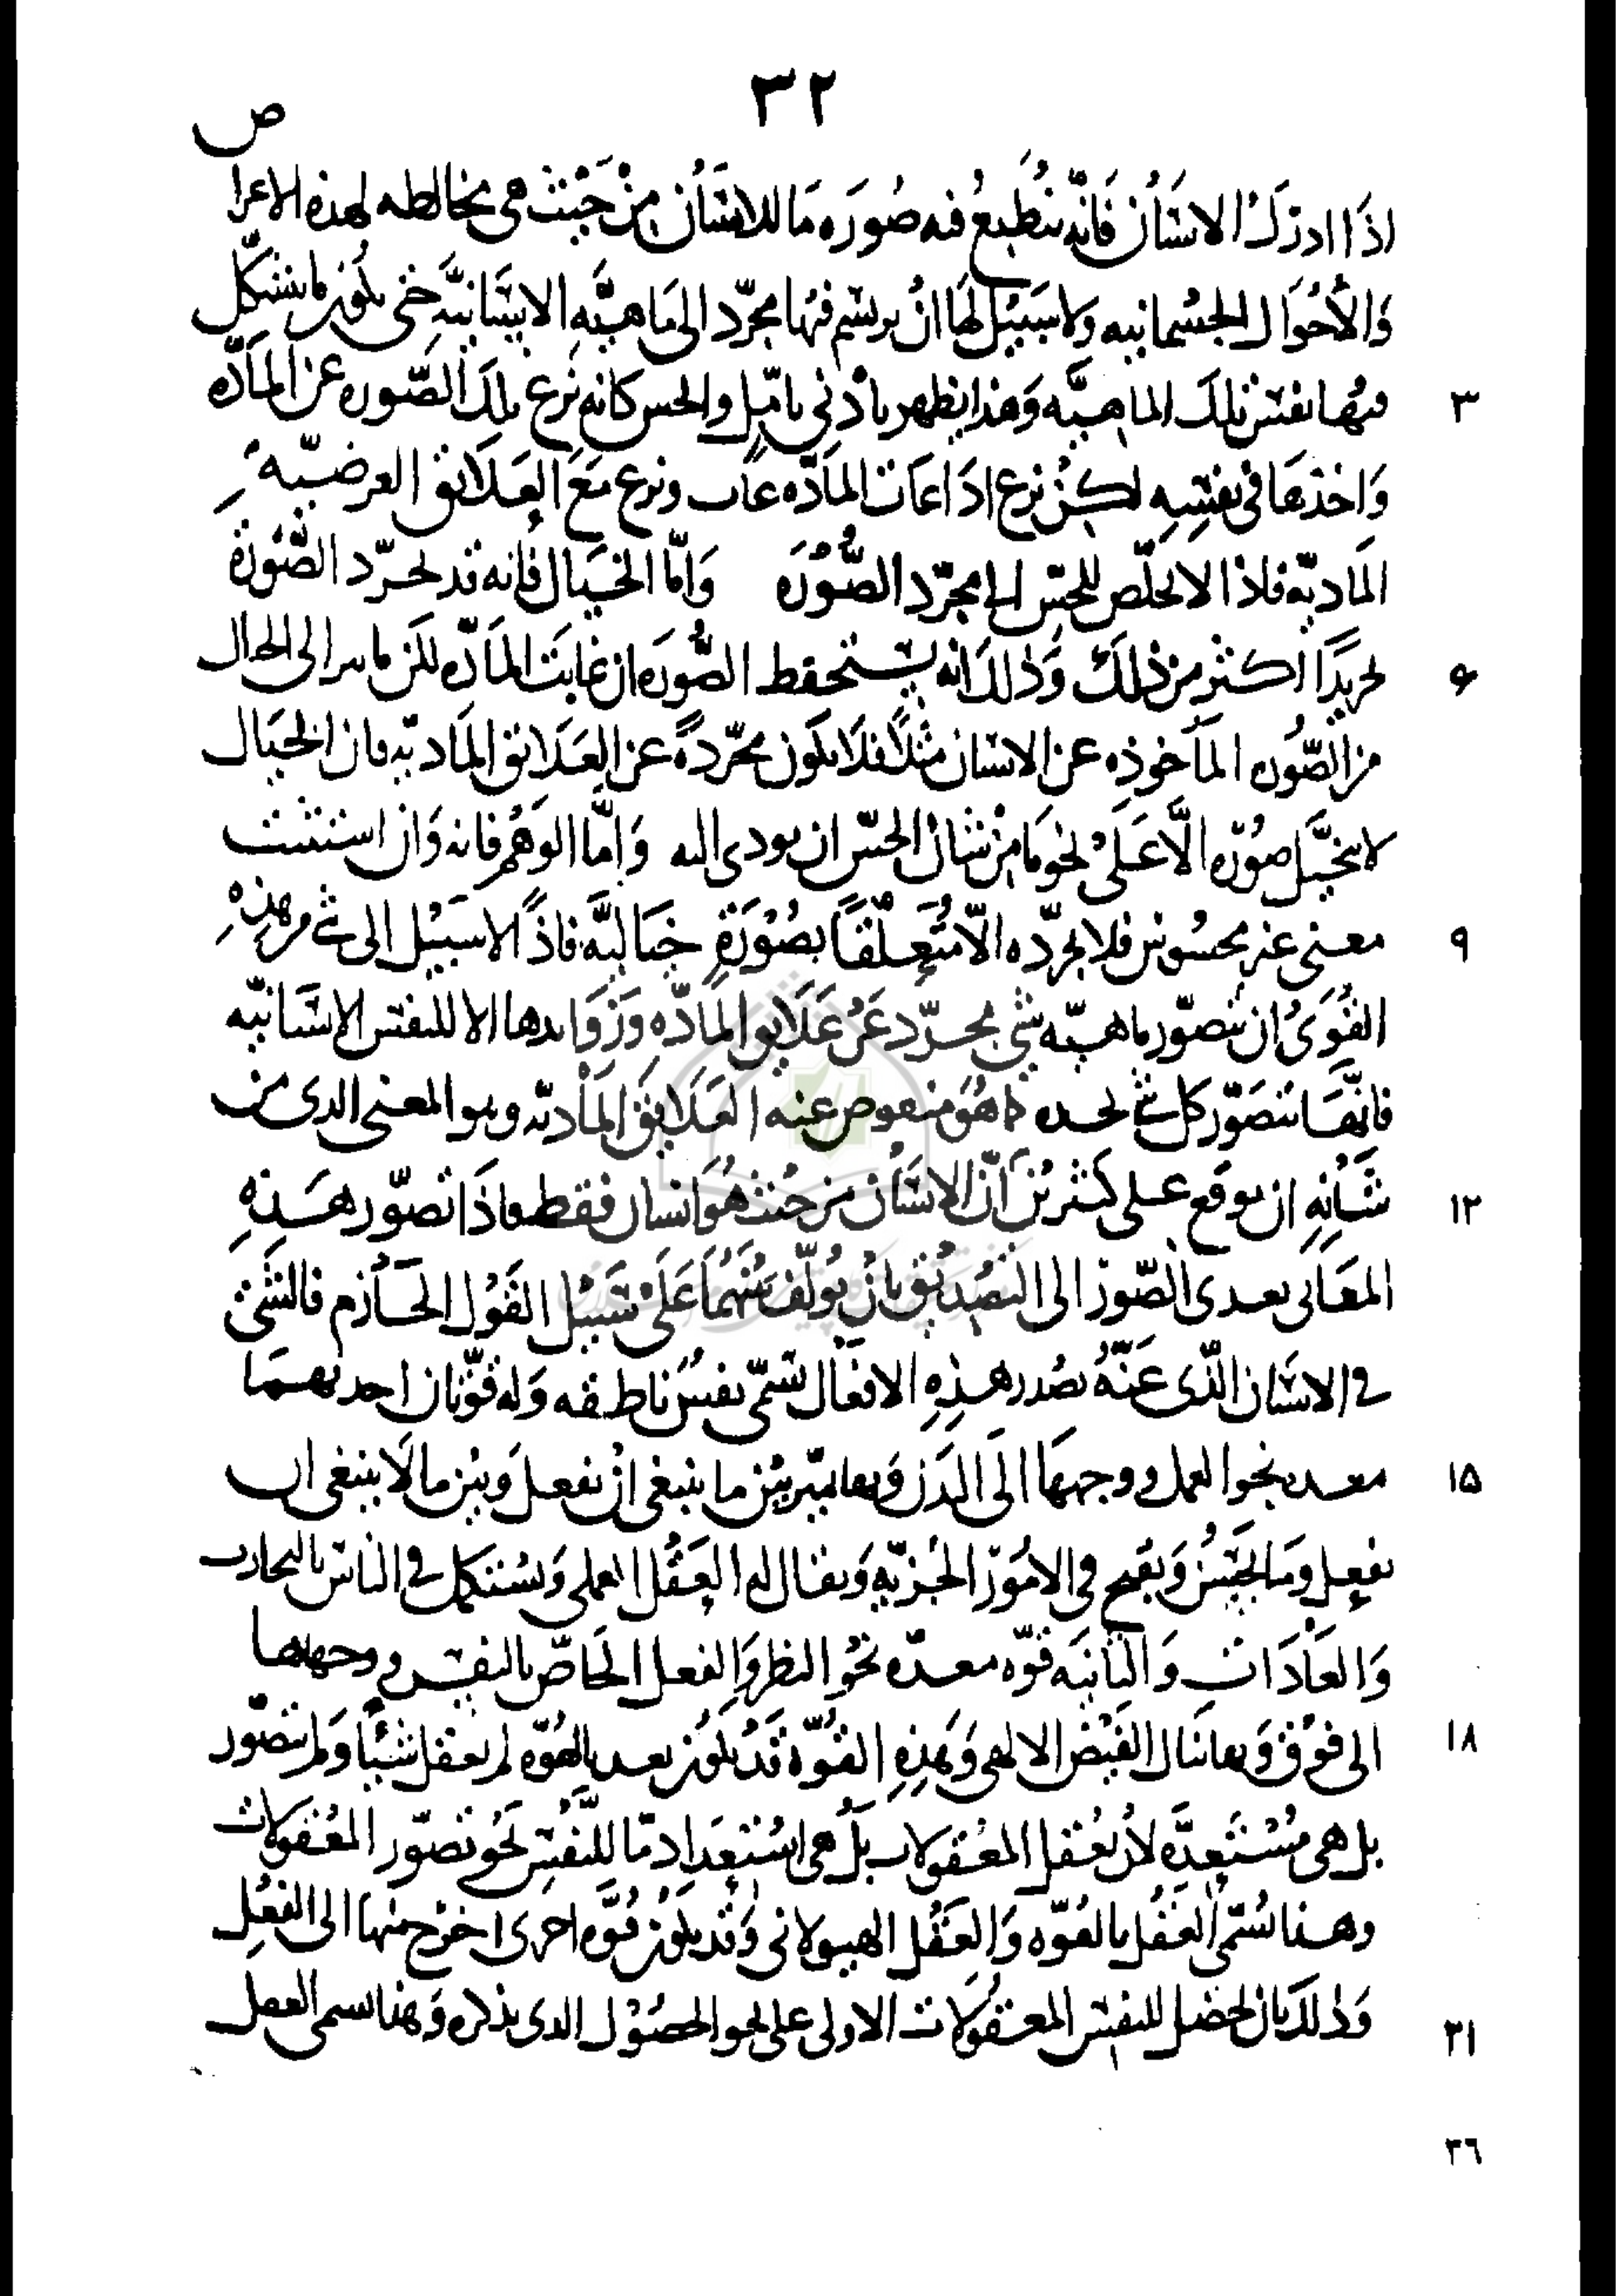 ٣٢
ص
اذا ادرك الانسان فانه ينطبع فيه صورة ما للانسان من حيث هي مخالطه لهذه الاعرا
والأحوال الجسمانيه ولا سبيل لها ان يرتسم فيها مجرد الماهيه الانسانيه حتى يكون ما يتشكل
٣ فيها نفس تلك الماهيه وهذا يظهر بأدنى تامل والحس كانه نزع تلك الصوره عن الماده
واخذها في نفسه لكن نزع اذا غابت الماده غاب ونزع مع العلائق العرضيه
الماديه فاذا لا يخلص للحس الى مجرد الصوره واما الخيال فانه قد يجرد الصورة
۶ تجريدا أكثر من ذلك وذلك انه يستحفظ الصورة ان غابت الماده لكن ما الى الخيال
من الصوره المأخوذه عن الانسان مثلا فلا يكون مجردة عن العلائق الماديه فان الخيال
لا يتخيل صوره الا على نحو ما من شان الحس ان يودى اليه واما الوهم فانه وان استثبت
٩ معنى غير محسوس فلا يجرده الا متعلقا بصورة خياليه فاذا لا سبيل الى شئ من هذه
القوى ان يتصور ماهيه شي مجرد عن علايق الماده وزوايدها الا للنفس الانسانيه
فانها تتصور كل شئ بحده كما هو منفوض عنه العلايق الماديه وهو المعنى الذى من
١٢ شانه ان يوقع على كثيرين ان الانسان من حيث هو انسان فقط فاذا تصور هذه
المعانى تعدى التصور الى التصديق بان يولف بينهما على سبيل القول الجازم فالشئ
في الانسان الذى عنه تصدر هذه الافعال تسمى نفس ناطقه وله قوتان احدىهما
١٥ معده نحو العمل ووجهها الى البدن وبها يميز بين ما ينبغى ان يفعل وبين ما لا ينبغى ان
يفعل وما يحسن ويقبح في الامور الجزئيه ويقال له العقل العملى ويستكمل في الناس بالتجارب
والعادات والثانيه قوه معده نحو النظر والفعل الخاص بالنفس ووجهها
١٨ الى فوق وبها ينال الفيض الالهى وهذه القوة قد يكون بعد بالقوه لم يعقل شيئا ولم يتصور
بل هى مستعده لأن يعقل المعقولات بل هى استعداد ما للنفس نحو تصور المعقولات
وهذا يسمى العقل بالقوه والعقل الهيولانى وقد يكون قوه اخرى اخرج منها الى الفعل
٢١ وذلك بان يحصل للنفس المعقولات الاولى على نحو الحصول الذى يذكره وهذا يسمى العقل
٣٦